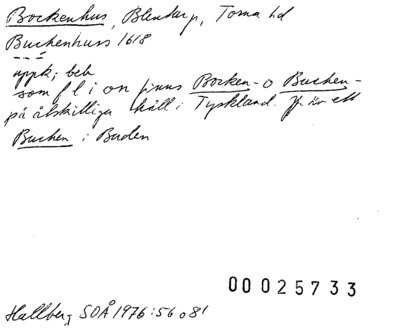 Bockenhus, Blentarp, Torna hd
Buckenhuss 1618
uppk; beb
som f l i on finns Bocken- o Buchen-
på åtskilliga håll i Tyskland. Jfr är ett
Buchen i Baden
00025733
Hallberg SOÅ 1976:56 o 81